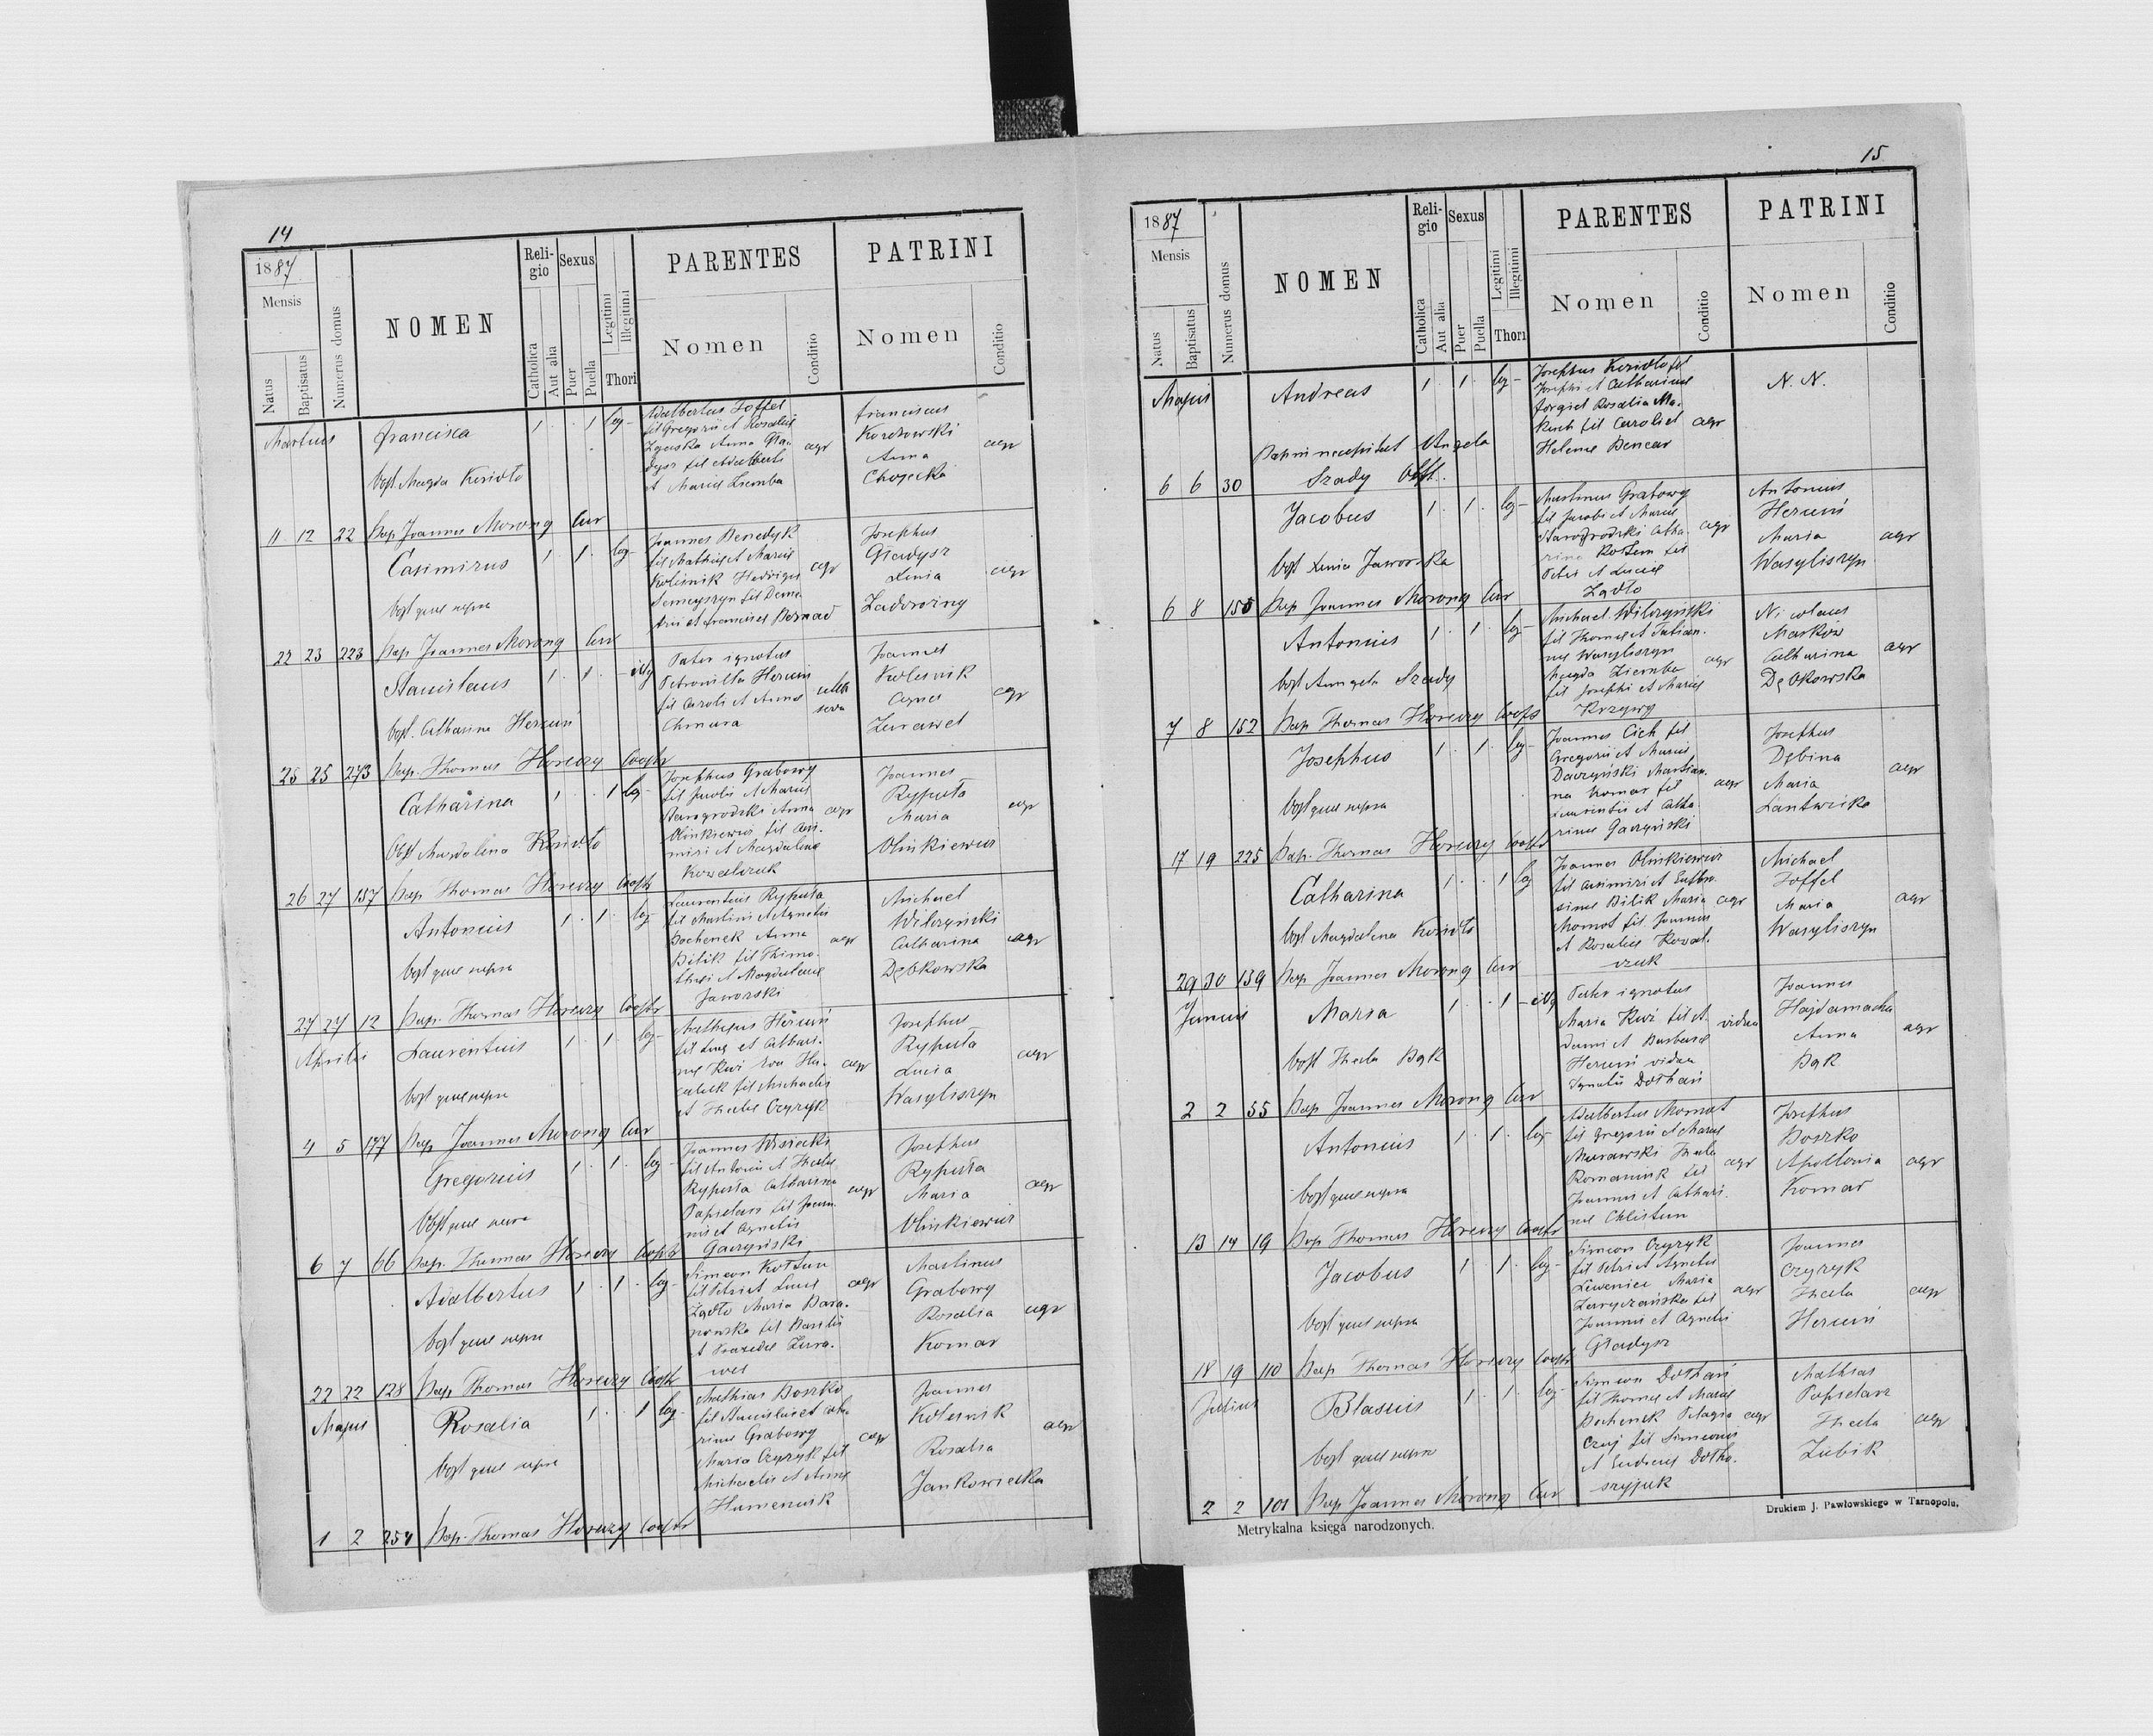 14
1887
Mensis
Natus
Baptisatus
Numerus domus
NOMEN
Reli-
gio
Catholica
Aut alia
Sexus
Puer
Puella
Legitimi
Illegitimi
Thori
PARENTES
Nomen
Conditio
PATRINI
Nomen
Conditio
Martius
Francisca
1 1 leg
Adalbertus Joffel
fil Gregorii et Rosaliae
Anna Gła-
dysz fil Adalberti
et Mariae Ziemba
agr
Franciscus
Anna
Chojecka
agr
obst Magda Koridło
11 12 22 Bap Joannes Morong Cur
Casimirus
1 1 leg
Joannes Benedyk
fil Mathiae et Mariae
Kolesnik Hedvigis
Semczyszyn fil Deme
trii et Franciscae Bernad
agr
Josephus
Gładysz
Xenia
Zadvorny
agr
obst quae supra
22 23 223 Bap Joannes Morong Cur
Stanislaus
1 1 illeg
Pater ignotus
Petronilla Hercuń
fil Caroli et Annae
Chmara
Joannes
Kolesnik
Agnes
Zurawel
agr
obst. Catharina Hercuń
25 25 273 Bap. Thomas Horeczy Coop
Catharina
1 1 leg
Josephus Grabowy
fil Jacobi et Mariae
Starogrodzki Anna
Olinkiewicz fil Casi-
miri et Magdalenae
Kowalczuk
agr
Joannes
Ryputa
Maria
Olinkiewicz
agr
Obst Magdalena Koridło
26 27 157 Bap Thomas Horeczy Coop
Antonius
1 1 leg
Laurentius Ryputa
fil Martini et Agnetis
Bochenek Anna
Bilik fil Thimo-
thei et Magdalenae
Jaworski
agr
Michael
Wilczyński
Catharina
Dębkowska
agr
obst quae supra
27 27 12 Bap. Thomas Horeczy Coop
Aprilis
Laurentius
1 1 leg
Mathaeus Hercuń
fil Lucae et Cathari-
nae Kuź Eva Hu-
culak fil Michaelis
et Theclae Czyryk
agr
Josephus
Ryputa
Lucia
Wasyliszyn
agr
obst quae supra
4 5 177 Bap Joannes Morong Cur
Gregorius
1 1 leg
Joannes Wisiecki
fil Antonii et Theclae
Ryputa Catharina
Papielarz fil Joan-
nis et Agnetis
Gaczyński
agr
Josephus
Ryputa
Maria
Olinkiewicz
agr
Obst quae supra
6 7 66 Bap. Thomas Horeczy Coop
Adalbertus
1 1 leg
Simeon Kottun
fil Petri et Luciae
Żądło Maria Bara-
nowska fil Basilii
et Zura-
wel
agr
Martinus
Grabowy
Rosalia
Komar
agr
obst quae supra
22 22 128 Bap Thomas Horeczy Coop
Majus
Rosalia
1 1 leg
Mathias Boszko
fil Stanislai et Catha-
rinae Grabowy
Maria Czyryk fil
Michaelis et Annae
Humeniuk
agr
Joannes
Kolesnik
Rosalia
Jankowiecka
agr
obst quae supra
1 2 254 Bap. Thomas Horeczy Coop
15
1887
Mensis
Natus
Baptisatus
Numerus domus
NOMEN
Reli-
gio
Catholica
Aut alia
Sexus
Puer
Puella
Legitimi
Illegitimi
Thori
PARENTES
Nomen
Conditio
PATRINI
Nomen
Conditio
Majus
Andreas
1 1 leg
Josephus Koridło fil
Josephi et Catharinae
Rosalia Ma-
fil Caroli et
Helenae Bencar
agr
N. N.
Bap in necessitate Angela
6 6 30 Szady Obst.
Jacobus
1 1 leg
Martinus Grabowy
fil Jacobi et Mariae
Starogrodzki Catha-
rina Kottun fil
Petri et Luciae
Żądło
agr
Antonius
Hercuń
Maria
Wasyliszyn
agr
obst Xenia Jaworska
6 8 155 Bap Joannes Morong Cur
Antonius
1 1 leg
Michael Wilczyński
fil Thomae et Julian-
nae Wasyliszyn
Magda Ziemba
fil Josephi et Mariae
Krzywy
agr
Nicolaus
Marków
Catharina
Dębkowska
agr
obst Angela Szady
7 8 152 Bap Thomas Horeczy Coop
Josephus
1 1 leg
Joannes Cich fil
Gregorii et Mariae
Daczyński Marian-
na Komar fil
Laurentii et Catha-
rinae Gaczyński
agr
Josephus
Dębina
Maria
Łantwicka
agr
obst quae supra
17 19 225 Bap. Thomas Horeczy Coop
Catharina
1 1 leg
Joannes Olinkiewicz
fil Casimiri et Eufro-
sinae Bilik Maria
Momot fil Joannis
et Rosaliae Kowal-
czuk
agr
Michael
Joffel
Maria
Wasyliszyn
agr
obst Magdalena Koridło
29 30 159 Bap Joannes Morong Cur
Junius
Maria
1 1 illeg
Pater ignotus
Maria Kuź fil A-
dami et Barbarae
Hercuń vidua
Ignatii Dołhań
vidua
Joannes
Hajdamacha
Anna
Bąk
agr
obst Thecla Bąk
2 2 55 Bap Joannes Morong Cur
Antonius
1 1 leg
Adalbertus Momot
fil Gregorii et Mariae
Murawski Thecla
Romaniuk fil
Joannis et Cathari-
nae Chlistun
agr
Josephus
Boszko
Apollonia
Komar
agr
obst quae supra
13 14 19 Bap Thomas Horeczy Coop
Jacobus
1 1 leg
Simeon Czyryk
fil Petri et Agnetis
Lewenicz Maria
fil
Joannis et Agnetis
Gładysz
agr
Joannes
Czyryk
Thecla
Hercuń
agr
obst quae supra
18 19 110 Bap Thomas Horeczy Coop
Julius
Blasius
1 1 leg
Simeon Dołhań
fil Thomae et Mariae
Bochenek Pelagia
Czuj fil Simeonis
et Eudociae Dołho-
szyjuk
agr
Mathias
Papielarz
Thecla
Zubik
agr
obst quae supra
2 2 101 Bap Joannes Morong Cur
Metrykalna księga narodzonych.
Drukiem J. Pawłowskiego w Tarnopolu.